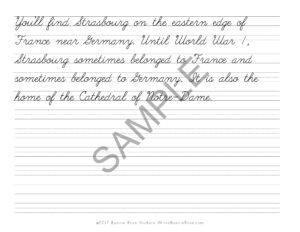 You'll find Strasbourg on the eastern edge of
France near Germany. Until World War 1,
Strasbourg sometimes belonged to France and
sometimes belonged to Germany. It is also the
home of the Cathedral of Notre-Dame.
SAMPLE